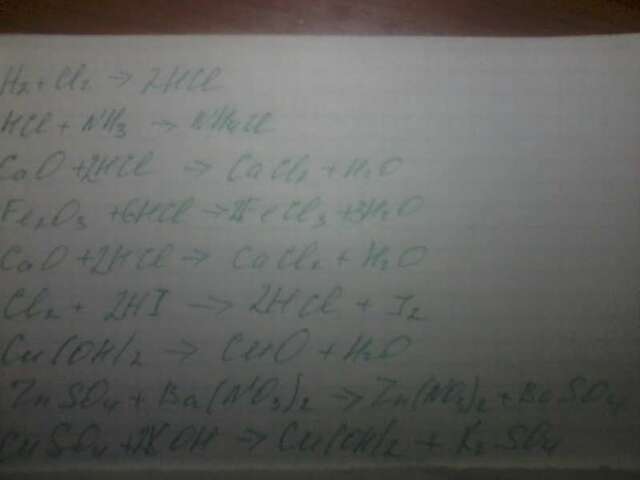 H2 + Cl2 → 2HCl
HCl + NH3 → NH4Cl
CaO + 2HCl → CaCl2 + H2O
Fe2O3 + 6HCl → 2FeCl3 + 3H2O
CaO + 2HCl → CaCl2 + H2O
Cl2 + 2HI → 2HCl + I2
Cu(OH)2 → CuO + H2O
ZnSO4 + Ba(NO3)2 → Zn(NO3)2 + BaSO4
CuSO4 + 2KOH → Cu(OH)2 + K2SO4